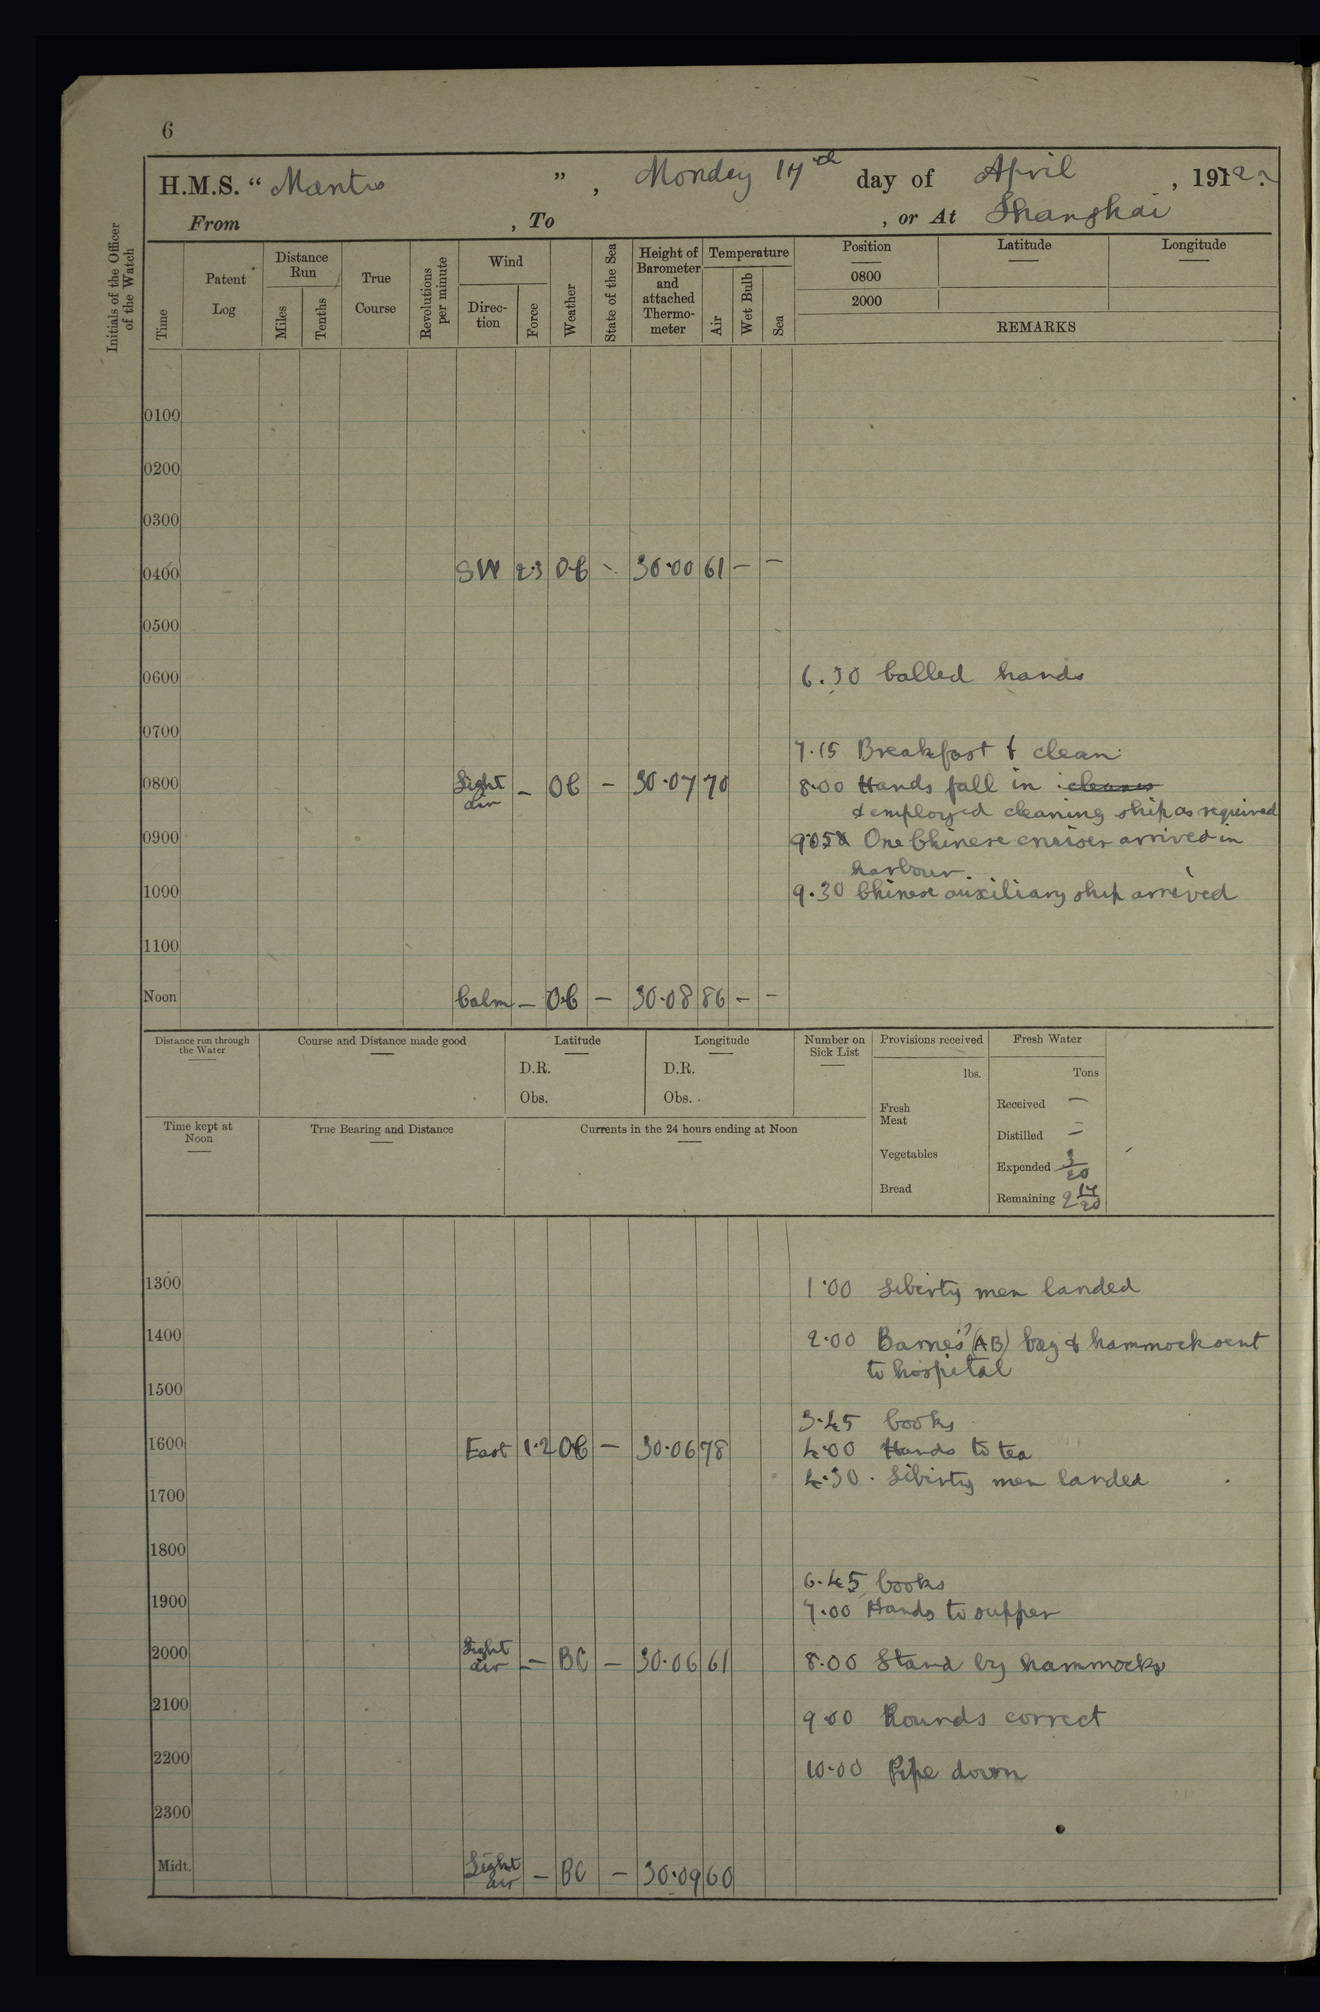 6
H.M.S. “ Mantis ” , Monday 17th day of April , 1922.
From , To , or At Shanghai
Initials of the Officer of the Watch
Time
Patent Log
Distance Run
Miles
Tenths
True Course
Revolutions per minute
Wind
Direc-tion
Force
Weather
State of the Sea
Height of Barometer and attached Thermo-meter
Temperature
Air
Wet Bulb
Sea
Position
Latitude
Longitude
0800
2000
REMARKS
0100
0200
0300
0400 SW 2·3 OC - 30·00 61 — —
0500
0600 6.30 Called hands
0700
7.15 Breakfast & clean
0800 Light air — OC — 30·07 70 8·00 Hands fall in cleaned
& employed cleaning ship as required
0900 9·05 One Chinese cruiser arrived in
harbour.
1000 9.30 Chinese auxiliary ship arrived
1100
Noon Calm — OC — 30·08 86 — —
Distance run through the Water
Course and Distance made good
Latitude
D.R.
Obs.
Longitude
D.R.
Obs.
Number on Sick List
Provisions received
lbs.
Fresh Meat
Vegetables
Bread
Fresh Water
Tons
Received —
Distilled —
Expended 3/20
Remaining 2 17/20
Time kept at Noon
True Bearing and Distance
Currents in the 24 hours ending at Noon
1300 1·00 Liberty men landed
1400 2·00 Barnes' (AB) bag & hammock sent
to hospital
1500
3·45 Cooks
1600 East 1·2 OC — 30·06 78 4·00 Hands to tea
4·30 Liberty men landed
1700
1800
6·45 Cooks
1900 7·00 Hands to supper
2000 Light air — BC — 30·06 61 8·00 Stand by hammocks
2100 9·00 Rounds correct
2200 10·00 Pipe down
2300
Midt. Light air — BC — 30·09 60